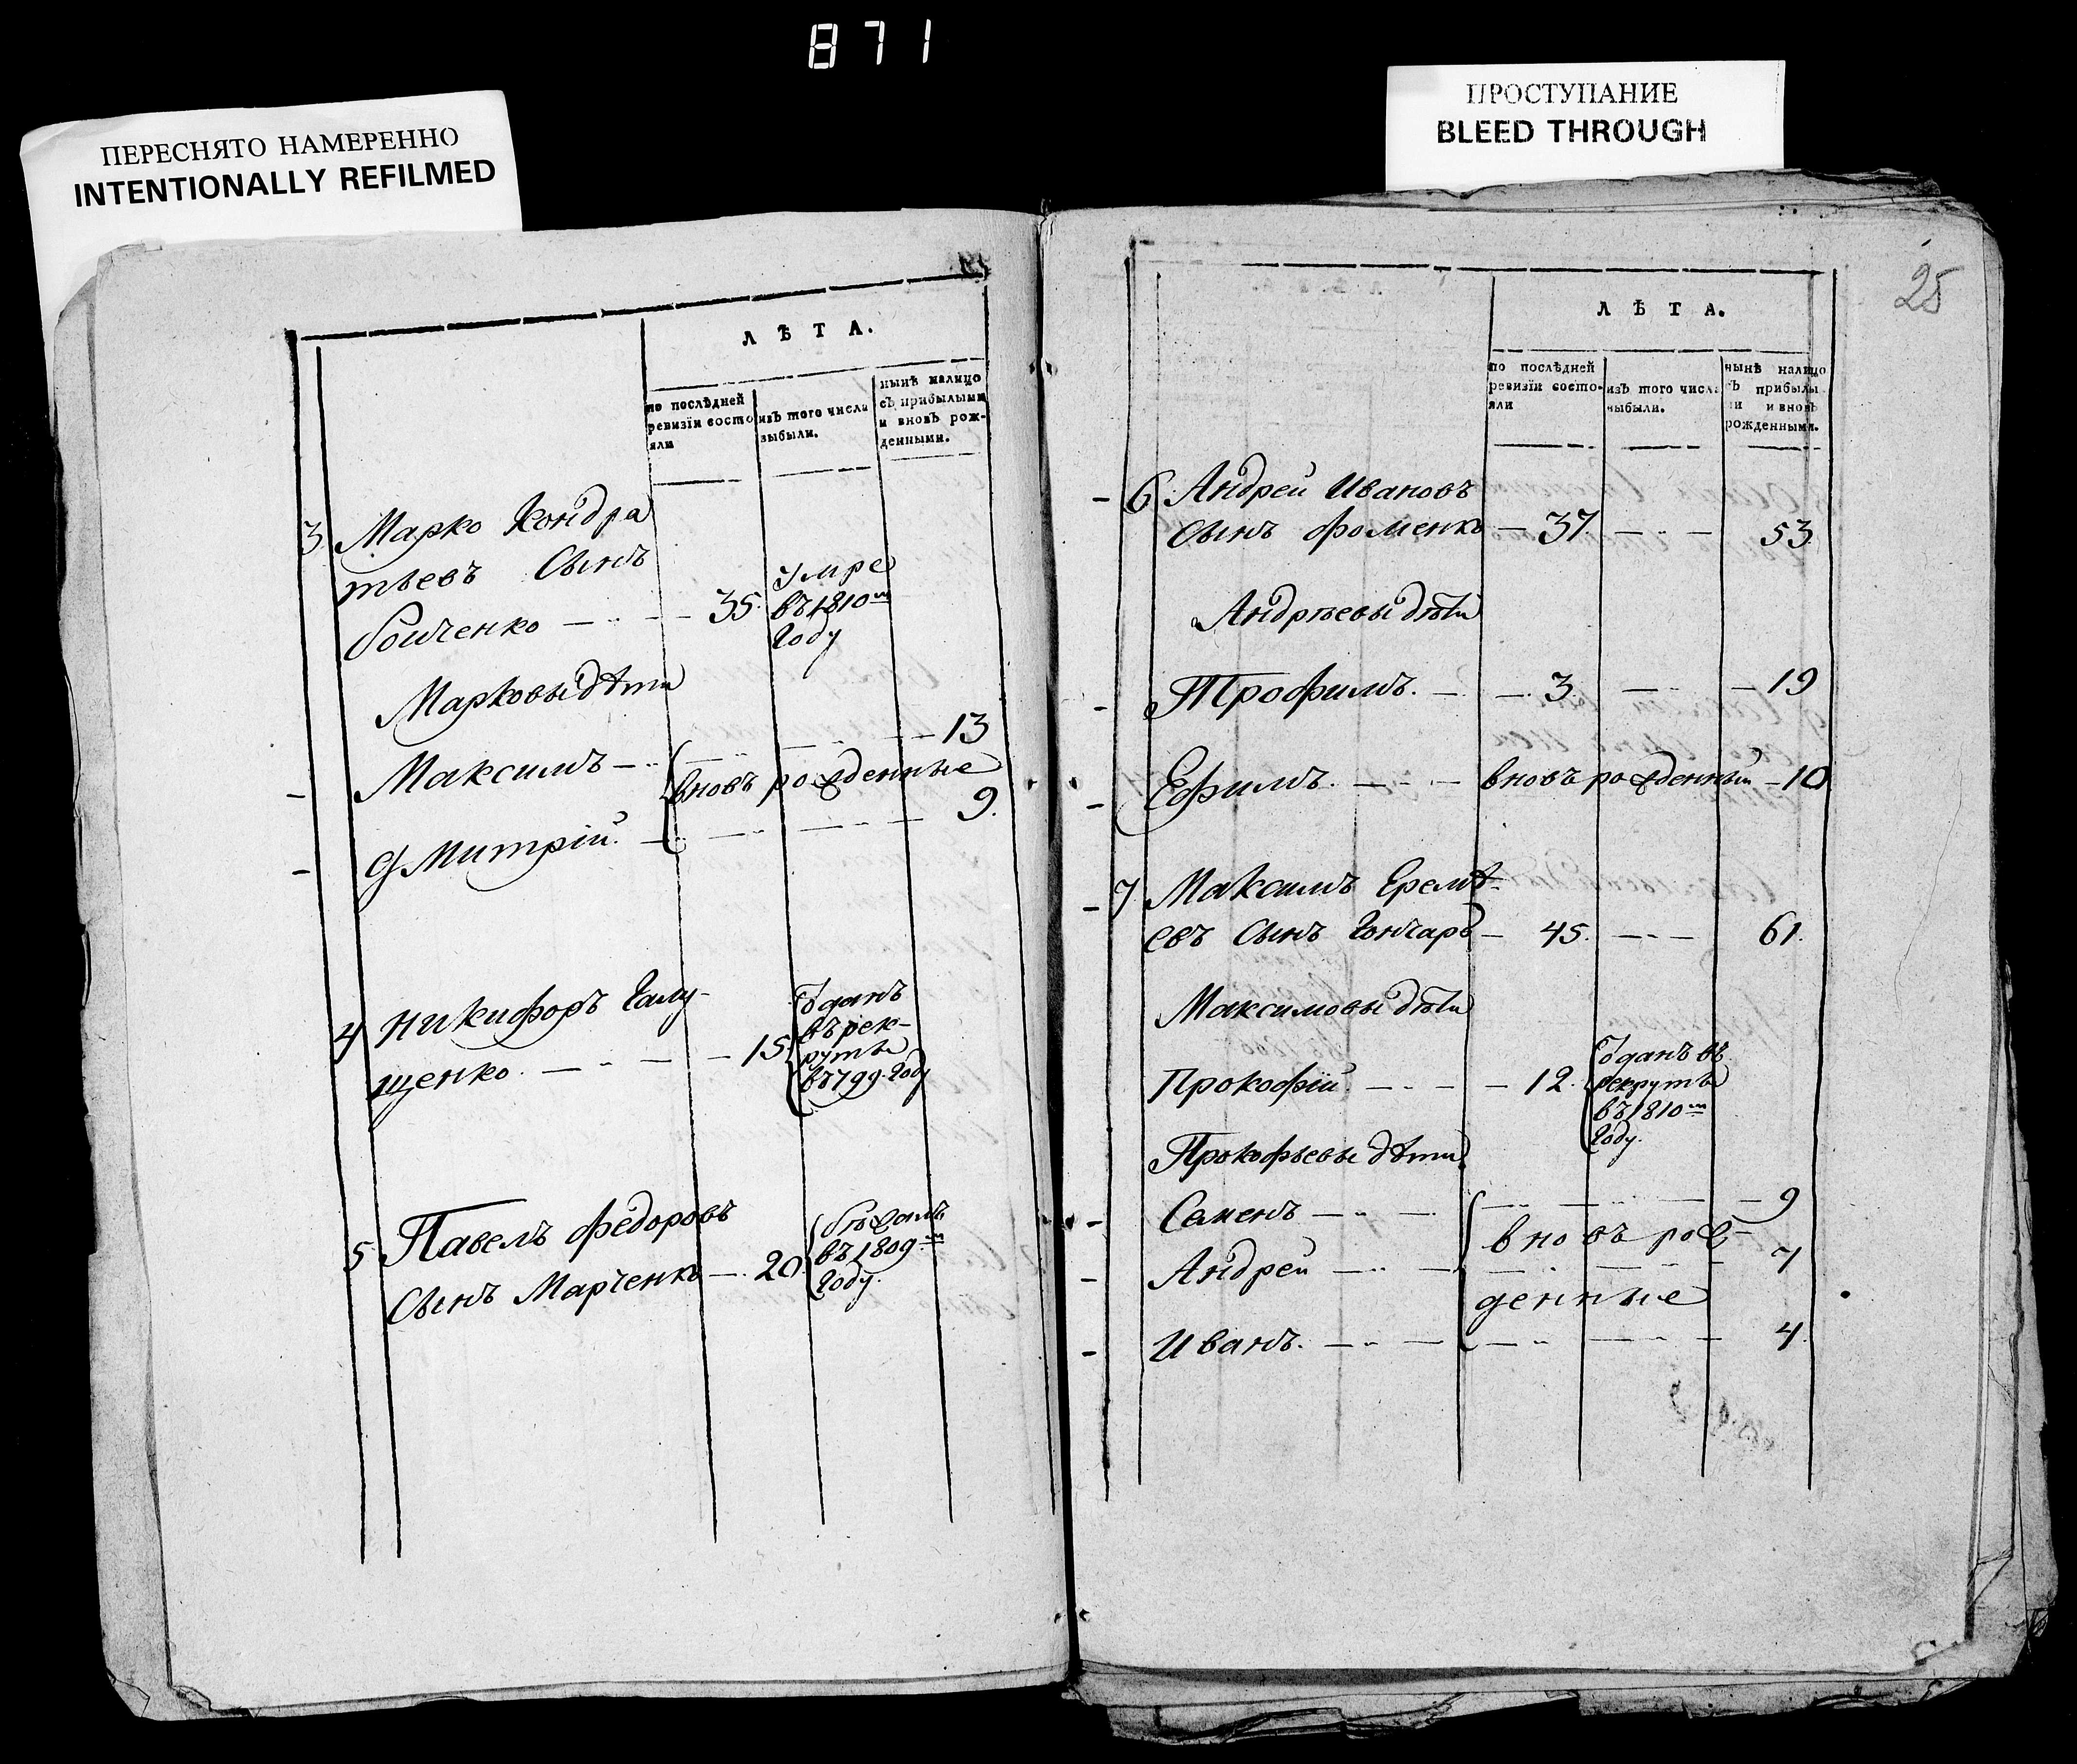 871
ПЕРЕСНЯТО НАМЕРЕННО
INTENTIONALLY REFILMED
ПРОСТУПАНИЕ
BLEED THROUGH
ЛѢТА.
по послѣдней ревизіи состояли
изъ того числа выбыли.
нынѣ налицо съ прибылыми и вновь рожденными.
3 Марко Кондра
тьевъ Сынъ
Бойченко — 35. умре въ 1810м году
Марковы дѣти
Максимъ — 13
вновь рожденные
Дмитрій. — 9.
4 Никифоръ Галу-
щенко. — 15. Отданъ въ рекруты въ 799. году
5 Павелъ Федоровъ
Сынъ Марченко — 20. бѣжалъ въ 1809м году.
25
ЛѢТА.
по послѣдней ревизіи состояли
изъ того числа выбыли.
нынѣ налицо съ прибылыми и вновь рожденными.
6 Андрей Ивановъ
Сынъ Фоменко — 37. — 53.
Андрѣевы дѣти
Трофимъ. — 3. — 19
Ефимъ. — вновь рожденный — 10
7 Максимъ Еремѣ-
евъ Сынъ Гончаръ — 45. — 61.
Максимовы дѣти
Прокофій. — 12. Отданъ въ рекруты въ 1810м году.
Прокофьевы дѣти
Семенъ — 9
вновь рож-
Андрей — 7
денные
Иванъ. — 4.